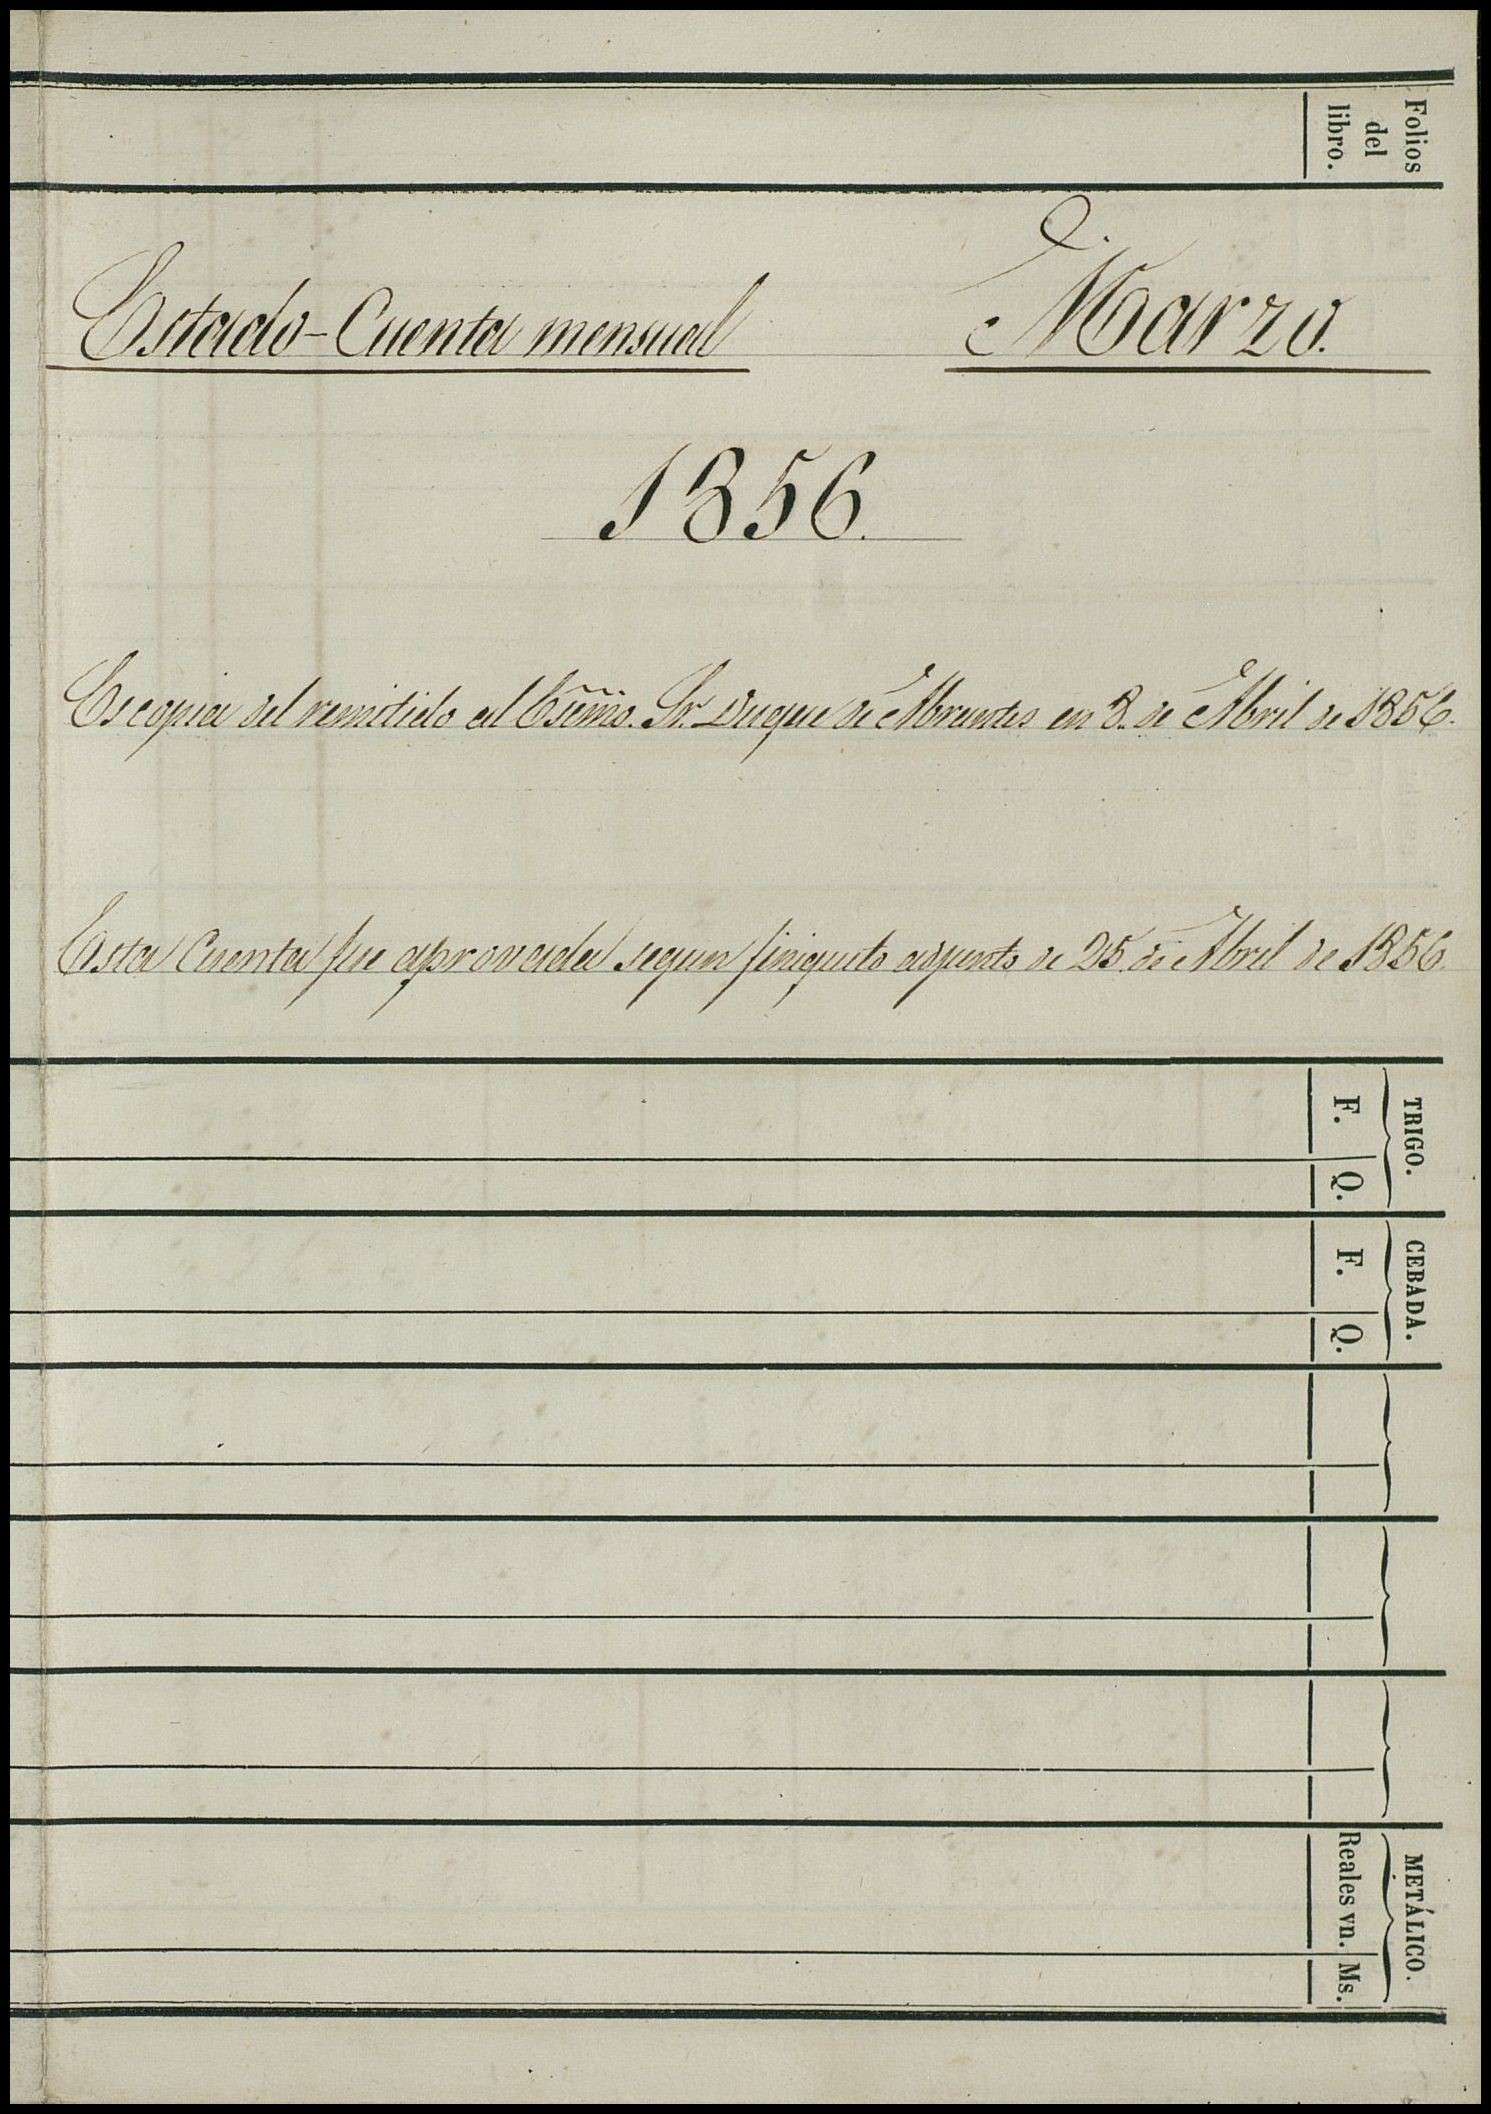 Folios
del
libro.
Estado-Cuenta mensual Marzo.
1856.
Es copia del remitido al Escmo. Sr. Duque de Abrantes en 8. de Abril de 1856.
Esta Cuenta fue aprovada segun finiquito adjunto de 25. de Abril de 1856.
TRIGO.
F. Q.
CEBADA.
F. Q.
METÁLICO.
Reales vn. Ms.